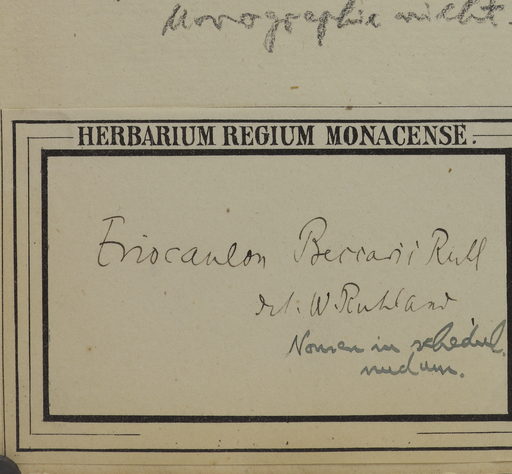 Monographie nicht.
HERBARIUM REGIUM MONACENSE.
Eriocaulon Beccarii Ruhl
det. W. Ruhland
Nomen in schedul.
nudum.